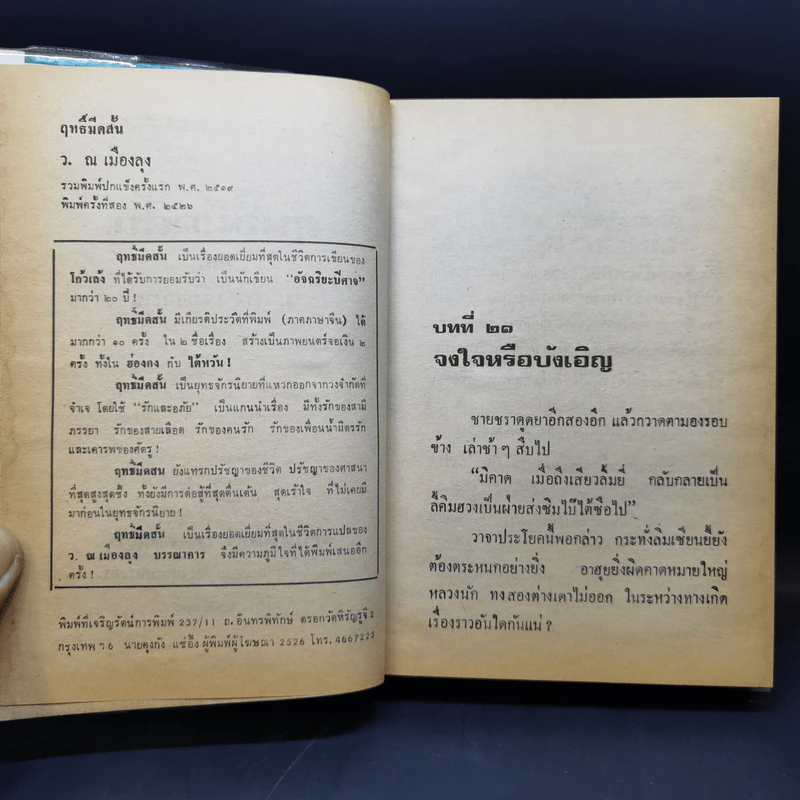 ฤทธิ์มีดสั้น
ว. ณ เมืองลุง
รวมพิมพ์ปกแข็งครั้งแรก พ.ศ. ๒๕๑๙
พิมพ์ครั้งที่สอง พ.ศ. ๒๕๒๖
ฤทธิ์มีดสั้น เป็นเรื่องยอดเยี่ยมที่สุดในชีวิตการเขียนของ
โก้วเล้ง ที่ได้รับการยอมรับว่า เป็นนักเขียน "อัจฉริยะปีศาจ"
มากว่า ๒๐ ปี!
ฤทธิ์มีดสั้น มีเกียรติประวัติที่พิมพ์ (ภาคภาษาจีน) ได้
มากกว่า ๑๐ ครั้ง ใน ๒ ชื่อเรื่อง สร้างเป็นภาพยนตร์จอเงิน ๒
ครั้ง ทั้งใน ฮ่องกง กับ ไต้หวัน!
ฤทธิ์มีดสั้น เป็นยุทธจักรนิยายที่แหวกออกจากวงจำกัดที่
จำเจ โดยใช้ "รักและอภัย" เป็นแกนนำเรื่อง มีทั้งรักของสามี
ภรรยา รักของสายเลือด รักของคนรัก รักของเพื่อนน้ำมิตรรัก
และเคารพของศัตรู!
ฤทธิ์มีดสั้น ยังแทรกปรัชญาของชีวิต ปรัชญาของศาสนา
ที่สุดสูงสุดซึ้ง ทั้งยังมีการต่อสู้ที่สุดตื่นเต้น สุดเร้าใจ ที่ไม่เคยมี
มาก่อนในยุทธจักรนิยาย!
ฤทธิ์มีดสั้น เป็นเรื่องยอดเยี่ยมที่สุดในชีวิตการแปลของ
ว. ณ เมืองลุง บรรณาคาร จึงมีความภูมิใจที่ได้พิมพ์เสนออีก
ครั้ง!
พิมพ์ที่เจริญรัตน์การพิมพ์ 237/11 ถ.อินทรพิทักษ์ ตรอกวัดหิรัญรูจี 2
กรุงเทพ ฯ6 นายคุงกัง แซ่อึ้ง ผู้พิมพ์ผู้โฆษณา 2526 โทร. 4667223
บทที่ ๒๑
จงใจหรือบังเอิญ
ชายชราดูดยาอีกสองอึก แล้วกวาดตามองรอบ
ข้าง เล่าช้า ๆ สืบไป
"มิคาด เมื่อถึงเสียวลิ้มยี่ กลับกลายเป็น
ลี้คิมฮวงเป็นฝ่ายส่งซิมไบ๊ไต้ซือไป"
วาจาประโยคนี้พอกล่าว กระทั่งลิ่มเซียนยี้ยัง
ต้องตระหนกอย่างยิ่ง อาฮุยยิ่งผิดคาดหมายใหญ่
หลวงนัก ทั้งสองต่างเดาไม่ออก ในระหว่างทางเกิด
เรื่องราวอันใดกันแน่?